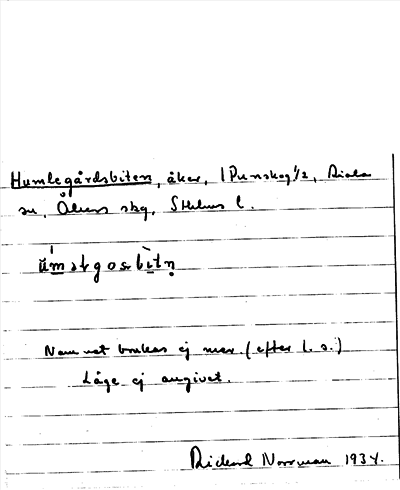 Humlegårdsbiten, åker, 1 Punskog 1/2, Riala
sn, Åkers skg, Sthlms l.
Namnet brukas ej mer. (efter l. s.)
Läge ej angivet.
Rickard Norrman 1934.